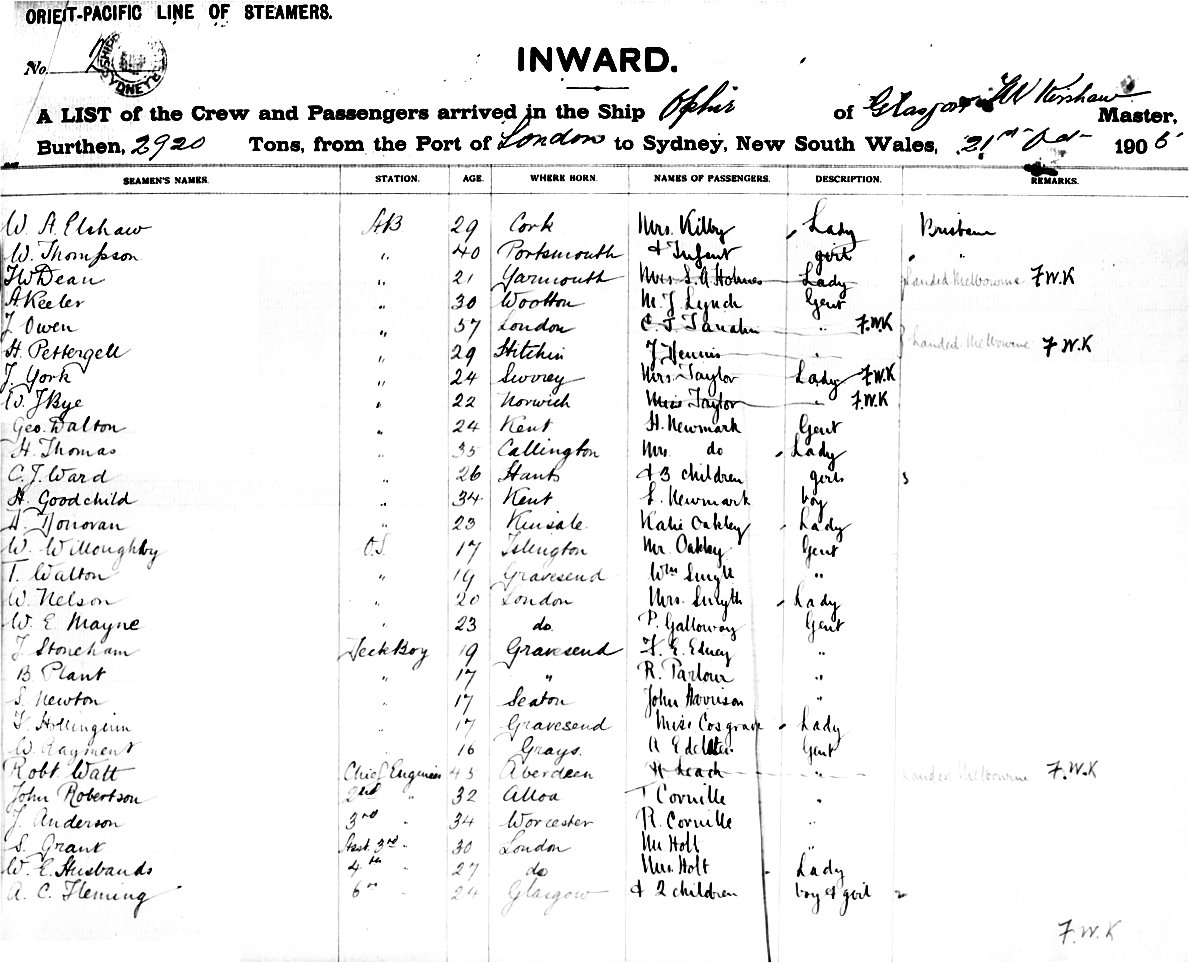 ORIENT-PACIFIC LINE OF STEAMERS.
No.
INWARD.
A LIST of the Crew and Passengers arrived in the Ship Ophir of Glasgow F W Kershaw Master,
Burthen, 2920 Tons, from the Port of London to Sydney, New South Wales, 21st 1906
SEAMEN'S NAMES. STATION. AGE. WHERE BORN. NAMES OF PASSENGERS. DESCRIPTION. REMARKS.
W. A. Elshaw AB 29 Cork Mrs. Kilby Lady Brisbane
W. Thompson " 40 Portsmouth & Infant girl "
F W Dean " 21 Yarmouth Mrs S. A Holmes Lady Landed Melbourne F.W.K
A Keeler " 30 Wootton M. J Lynch Gent
J Owen " 37 London C. J. " F.W.K
H. Pettergell " 29 Hitchin J Dennis " Landed Melbourne F.W.K
J. York " 24 Surrey Mrs. Taylor Lady F.W.K
W. J Bye " 22 Norwich Miss Taylor " F.W.K
Geo. Walton " 24 Kent H. Newmark Gent
H. Thomas " 35 Callington Mrs. do Lady
C. J. Ward " 26 Hants & 3 children girls 3
H. Goodchild " 34 Kent S. Newmark boy
D. Donovan " 23 Kinsale Katie Oakley Lady
W. Willoughby O.S. 17 Islington Mr. Oakley Gent
T. Walton " 19 Gravesend Wm Smyth "
W. Nelson " 20 London Mrs. Smyth Lady
W. E. Mayne " 23 do. P. Galloway Gent
J Stoneham Deck Boy 19 Gravesend F. E. Edney "
B. Plant " 17 " R. Parlour "
S. Newton 17 Seaton John Harrison "
17 Gravesend Miss Cosgrave Lady
W. Rayment 16 Grays. A Gent
Robt Watt Chief Engineer 45 Aberdeen H Leach " Landed Melbourne F.W.K
John Robertson 2nd " 32 Alloa T Corville "
J. Anderson 3rd " 34 Worcester R. Corville "
S. Grant Asst. 3rd " 30 London Mr Holt "
W. E. Husbands 4th " 27 do Mrs. Holt Lady
A. C. Fleming 6th " 24 Glasgow & 2 children boy & girl 2
F.W.K